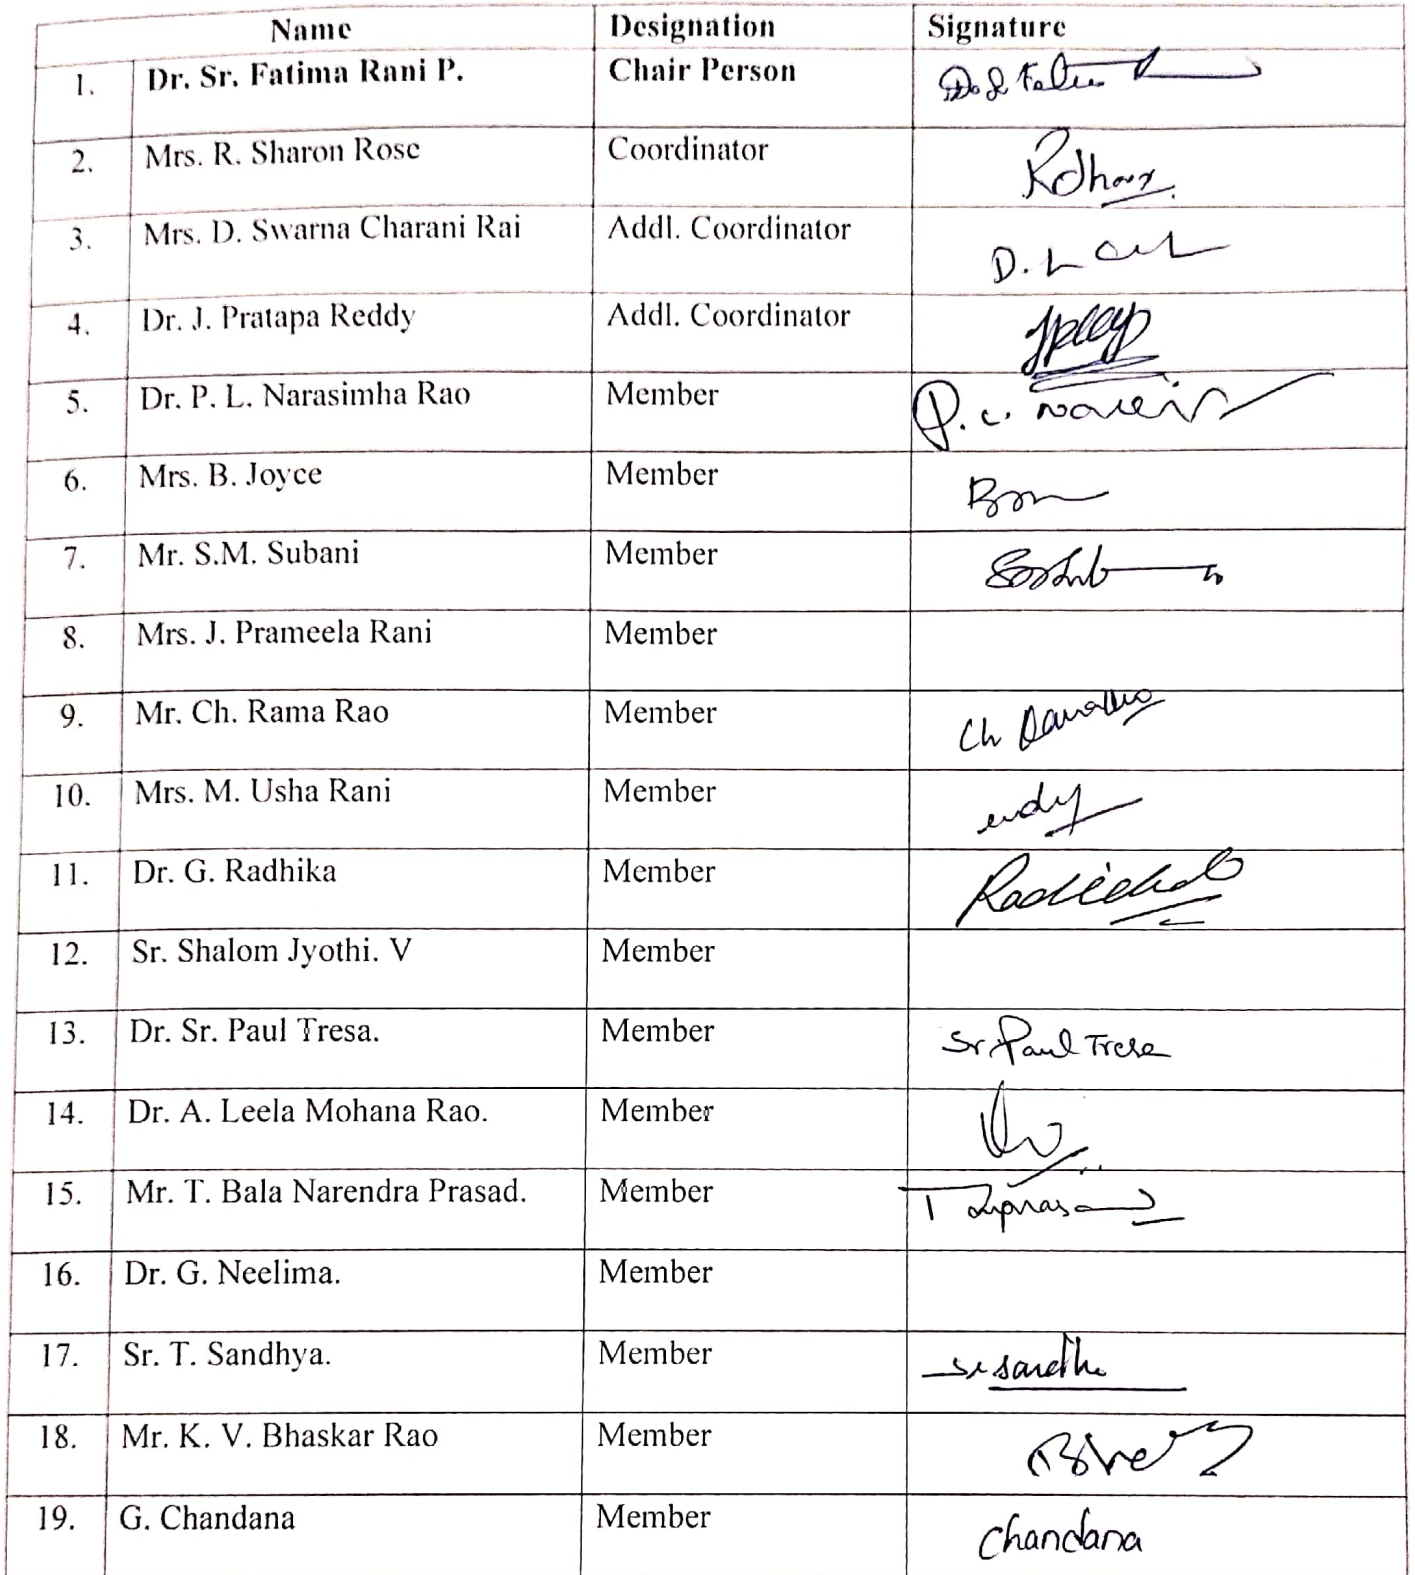 Name Designation Signature
1. Dr. Sr. Fatima Rani P. Chair Person
2. Mrs. R. Sharon Rose Coordinator
3. Mrs. D. Swarna Charani Rai Addl. Coordinator
4. Dr. J. Pratapa Reddy Addl. Coordinator
5. Dr. P. L. Narasimha Rao Member
6. Mrs. B. Joyce Member
7. Mr. S.M. Subani Member
8. Mrs. J. Prameela Rani Member
9. Mr. Ch. Rama Rao Member Ch
10. Mrs. M. Usha Rani Member
11. Dr. G. Radhika Member
12. Sr. Shalom Jyothi. V Member
13. Dr. Sr. Paul Tresa. Member Sr. Paul Tresa
14. Dr. A. Leela Mohana Rao. Member
15. Mr. T. Bala Narendra Prasad. Member
16. Dr. G. Neelima. Member
17. Sr. T. Sandhya. Member
18. Mr. K. V. Bhaskar Rao Member
19. G. Chandana Member Chandana